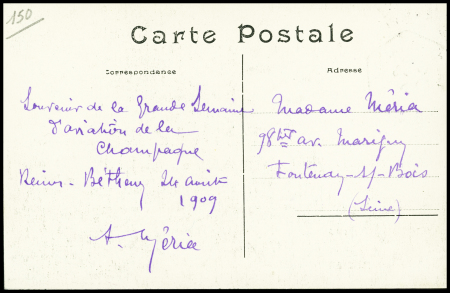 150
Carte Postale
Correspondance
Souvenir de la Grande Semaine
d'aviation de la
Champagne
Reims-Betheny 24 août
1909
A. Méria
Adresse
Madame Méria
98bis av. Marigny
Fontenay-s/-Bois
(Seine)